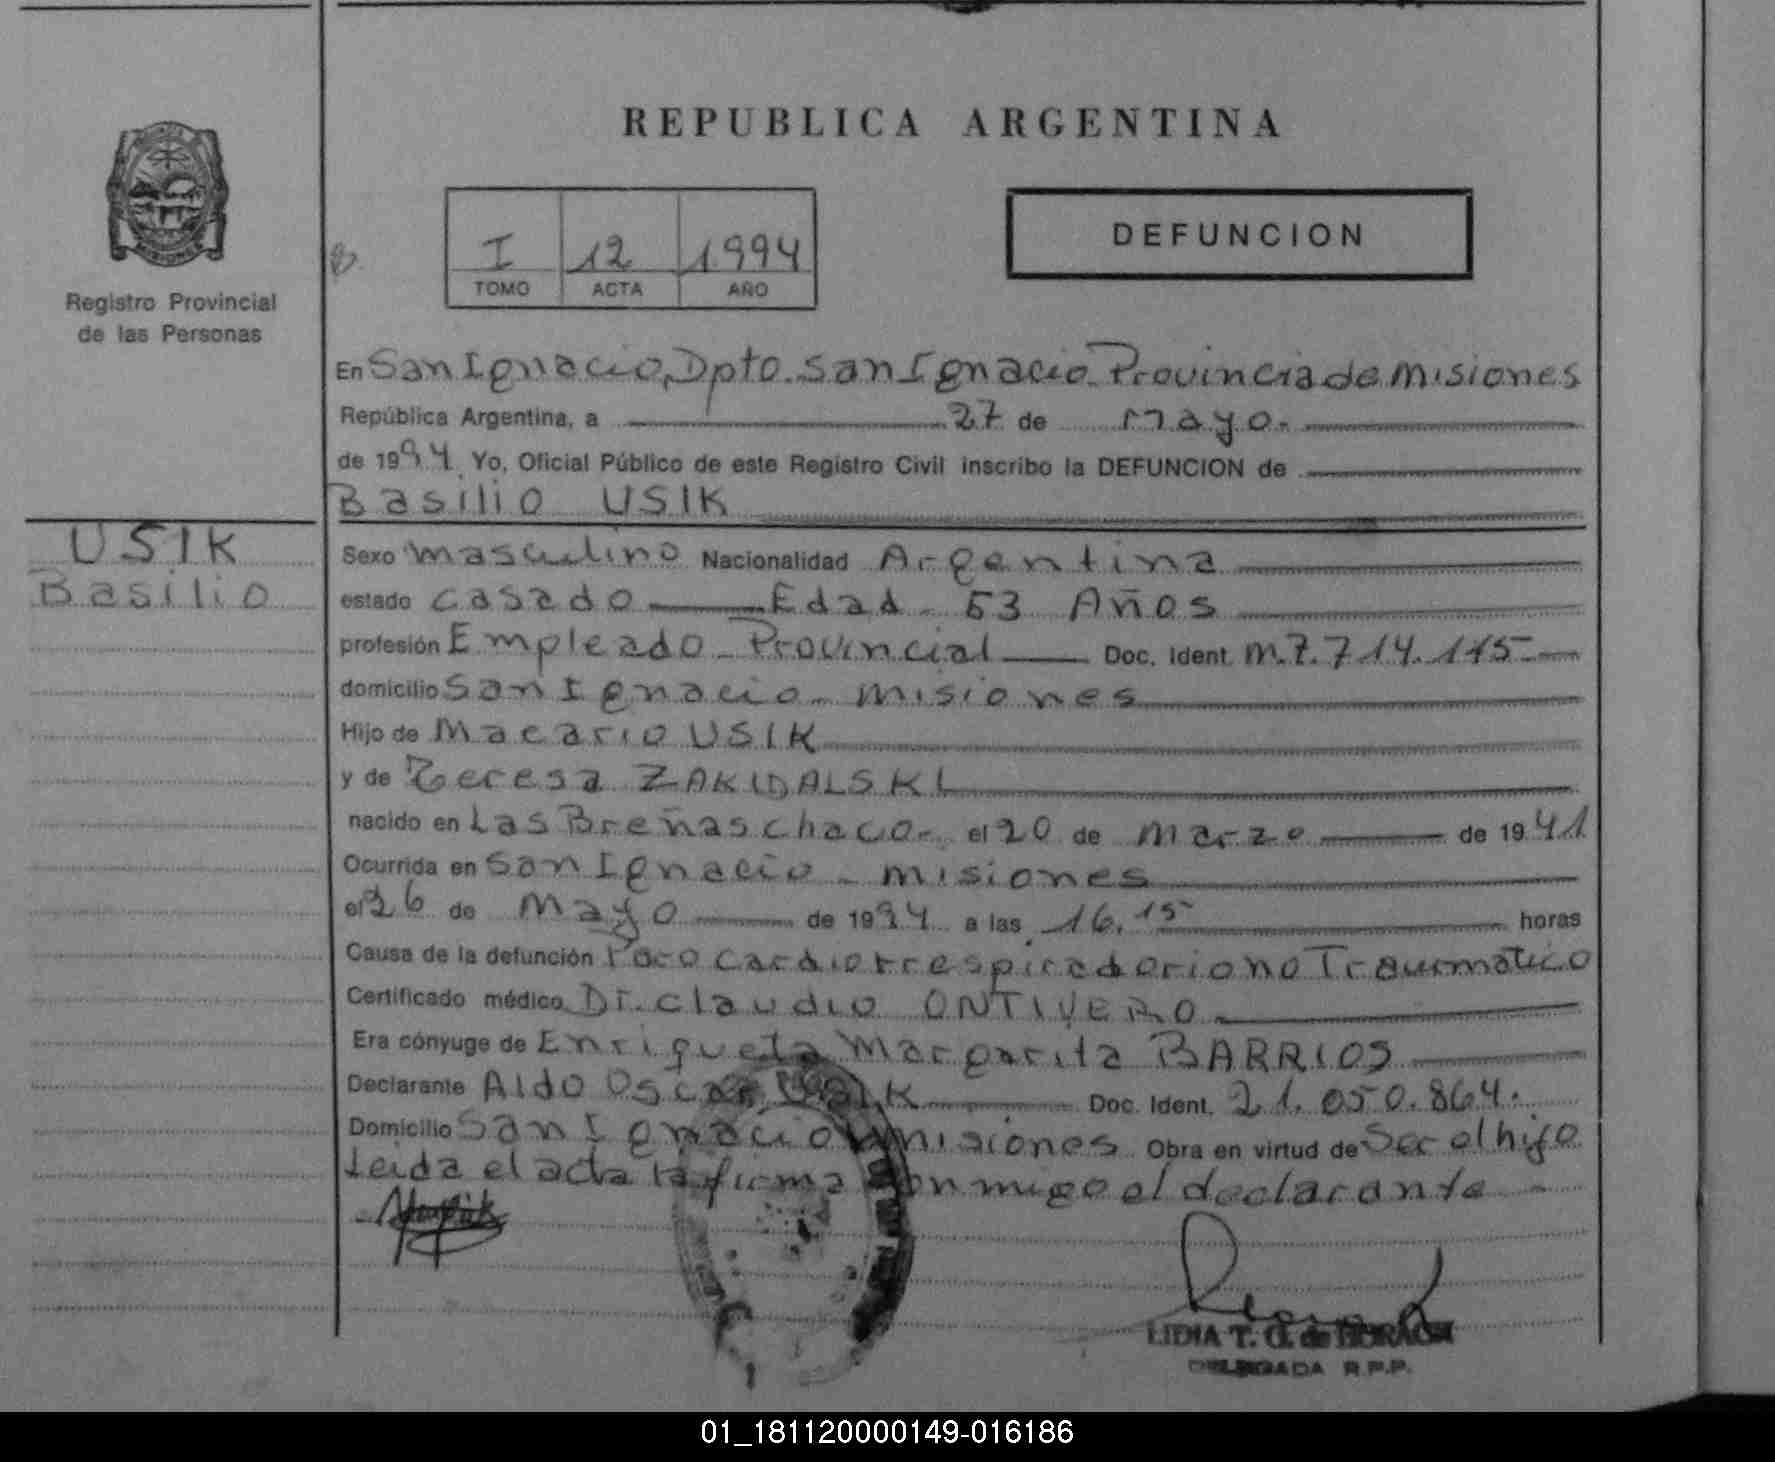 REPUBLICA ARGENTINA
MISIONES
Registro Provincial
de las Personas
I 12 1994
TOMO ACTA AÑO
DEFUNCION
En San Ignacio, Dpto. San Ignacio Provincia de Misiones
República Argentina, a 27 de Mayo.
de 1994 Yo, Oficial Público de este Registro Civil inscribo la DEFUNCION de
Basilio USIK
USIK
Basilio
Sexo masculino Nacionalidad Argentina
estado casado Edad 53 Años
profesión Empleado Provincial Doc. Ident. M.7.714.115
domicilio San Ignacio - Misiones
Hijo de Macario USIK
y de Teresa ZAKIDALSKI
nacido en Las Breñas Chaco - el 20 de Marzo de 1941
Ocurrida en San Ignacio - Misiones
el 26 de Mayo de 1994 a las 16.15 horas
Causa de la defunción Paro cardiorrespiradorio no Traumatico
Certificado médico Dr. Claudio ONTIVERO
Era cónyuge de Enriqueta Margarita BARRIOS
Declarante Aldo Oscar USIK Doc. Ident. 21.050.864.
Domicilio San Ignacio Misiones Obra en virtud de Ser el hijo
Leida el acta la firma conmigo el declarante
LIDIA T. G. de
DELEGADA R.P.P.
01_181120000149-016186